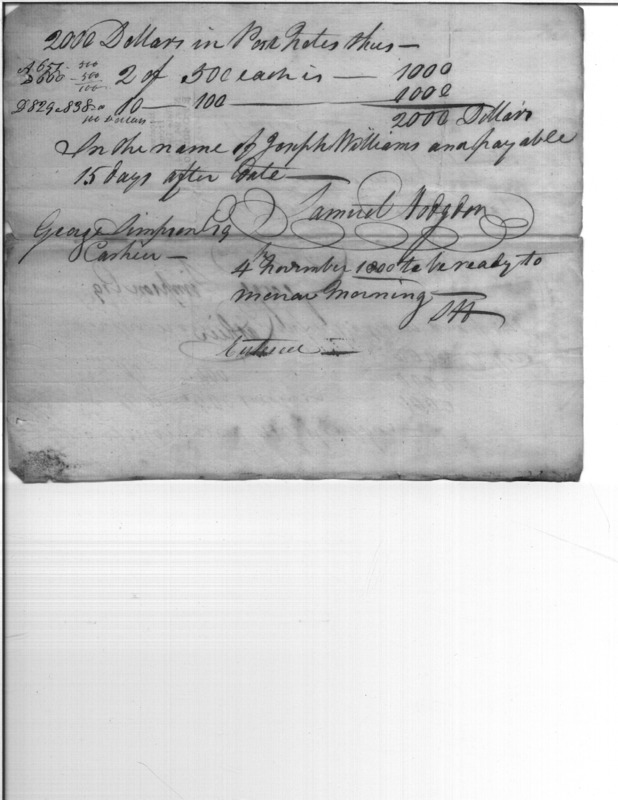 2000 Dollars in Post Notes thus —
A 657. 500
D 660 — 500 2 of 500 each is — 1000
100
D 829 a 838 10 — 100 — 1000
2000 Dollars
In the name of Joseph Williams and payable
15 days after date —
Samuel Hodgdon
George Simpson Esq
Cashier —
4th November 1800 to be ready to
morrow Morning —
SH